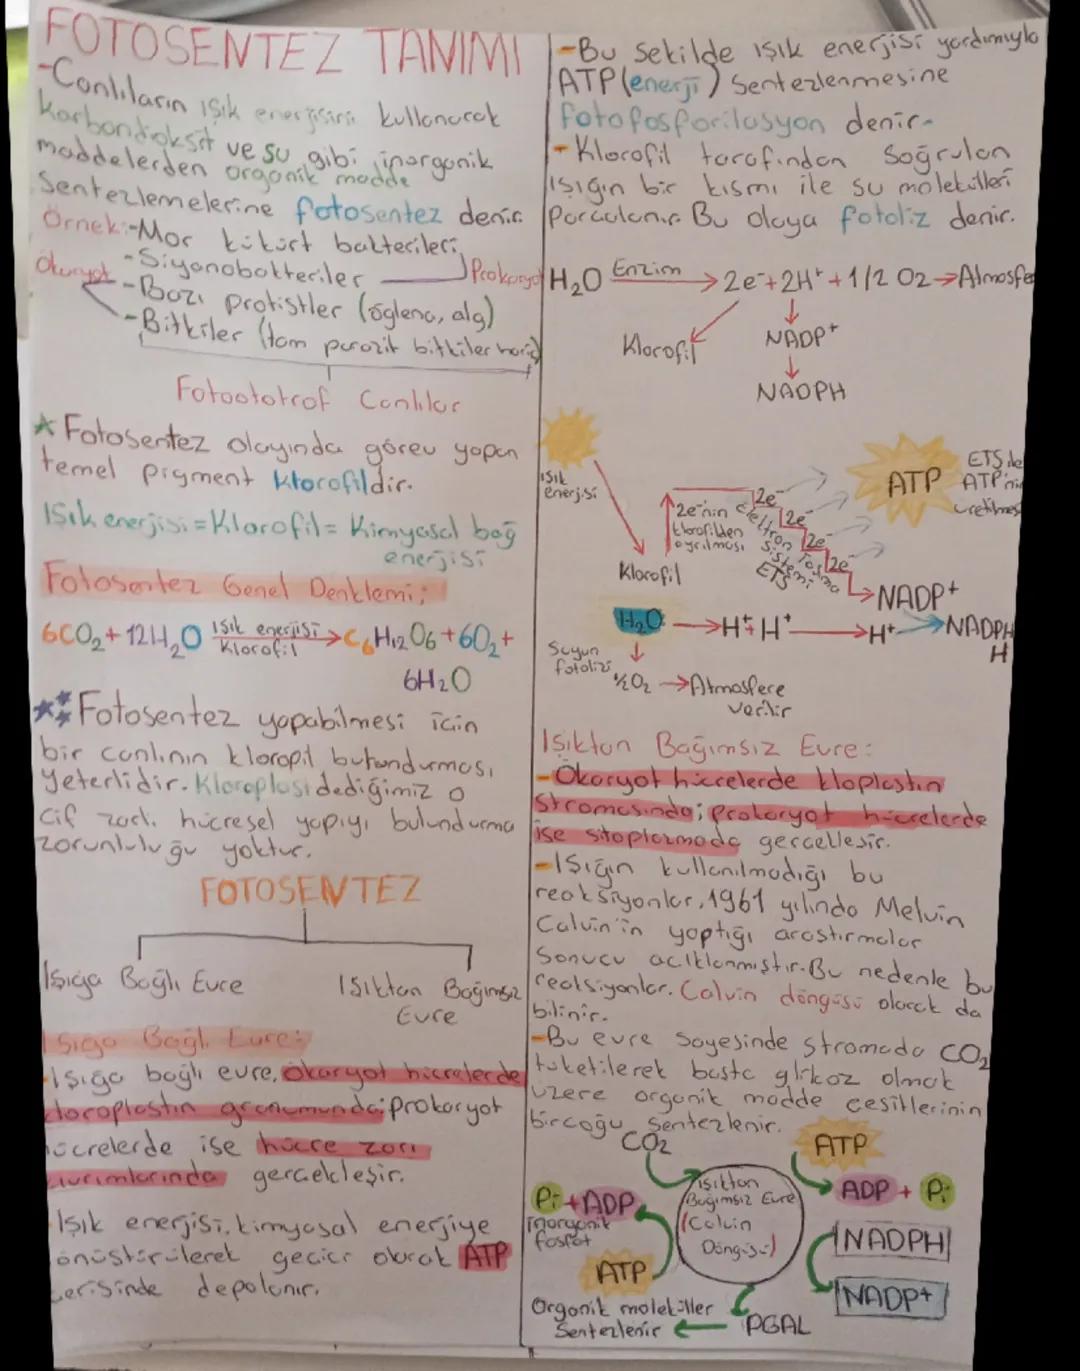 FOTOSENTEZ TANIMI
-Canlıların ışık enerjisini kullanarak
karbondioksit ve su gibi inorganik
maddelerden organik madde
sentezlemelerine fotosentez denir.
Örnek:-Mor kükürt bakterileri
-Siyanobakteriler
Prokaryot
Ökaryot
-Bazı protistler (öglena, alg)
-Bitkiler (tam parazit bitkiler hariç)
Fotoototrof Canlılar
Fotosentez olayında görev yapan
temel pigment klorofildir.
Işık enerjisi = Klorofil = Kimyasal bağ
enerjisi
Fotosentez Genel Denklemi;
6CO₂ + 12H₂O Işık enerjisi Klorofil → C₆H₁₂O₆ + 6O₂ +
6H₂O
Fotosentez yapabilmesi için
bir canlının kloropil bulundurması
yeterlidir. Kloroplast dediğimiz o
çif zarlı hücresel yapıyı bulundurma
zorunluluğu yoktur.
FOTOSENTEZ
Işığa Bağlı Evre
Işıktan Bağımsız
Evre
Işığa Bağlı Evre:
-Işığa bağlı evre, ökaryot hücrelerde
kloroplastın granumunda; prokaryot
hücrelerde ise hücre zarı
kıvrımlarında gerçekleşir.
Işık enerjisi, kimyasal enerjiye
dönüştürülerek geçici olarak ATP
içerisinde depolanır.
-Bu şekilde ışık enerjisi yardımıyla
ATP (enerji) sentezlenmesine
fotofosforilasyon denir.
-Klorofil tarafından soğrulan
ışığın bir kısmı ile su molekülleri
parçalanır. Bu olaya fotoliz denir.
H₂O Enzim → 2e⁻ + 2H⁺ + 1/2 O2 → Atmosfer
Klorofil
NADP⁺
NADPH
Işık
enerjisi
2e⁻nin
klorofilden
ayrılması
2e⁻
2e⁻
2e⁻
2e⁻
Elektron Taşıma
Sistemi
ETS
ATP
ETS ile
ATP'nin
üretilmesi
Klorofil
NADP⁺
H₂O → H⁺ H⁺ → H⁺ → NADPH
H
Suyun
fotolizi
½O₂ → Atmosfere
verilir
Işıktan Bağımsız Evre:
-Ökaryot hücrelerde kloplastın
stromasında; prokaryot hücrelerde
ise sitoplazmada gerçekleşir.
-Işığın kullanılmadığı bu
reaksiyonlar, 1961 yılında Melvin
Calvin'in yaptığı araştırmalar
sonucu açıklanmıştır. Bu nedenle bu
reaksiyonlar. Calvin döngüsü olarak da
bilinir.
-Bu evre sayesinde stromada CO₂
tüketilerek başta glikoz olmak
üzere organik madde çeşitlerinin
birçoğu sentezlenir.
CO₂
ATP
Işıktan
Bağımsız Evre
(Calvin
Döngüsü)
ADP + Pi
Pi + ADP
inorganik
fosfat
ATP
NADPH
NADP+
Organik moleküller
sentezlenir
PGAL